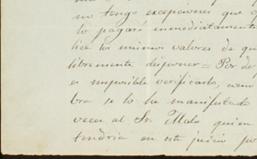 no tengo excepciones que
lo pagaré inmediatamente
los mismos valores de que
libremente disponer = Por de
es imposible verificarlo, com
se lo ha manifestado
veces al Sr. Malo quien
tendria en este juicio por